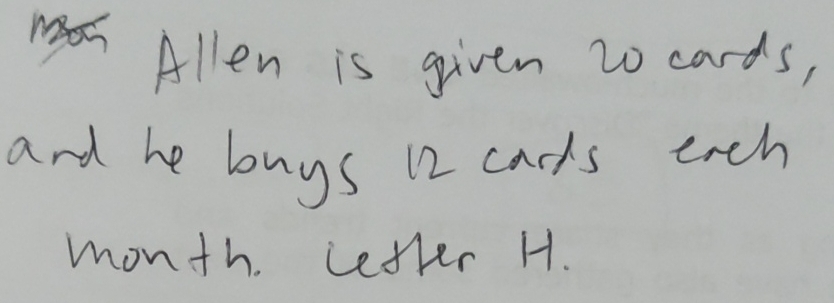 Allen is given 20 cards,
and he buys 12 cards each
month. Letter H.